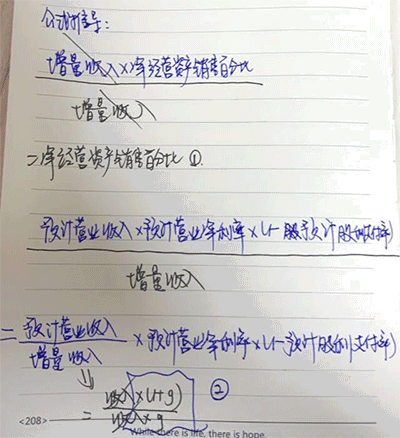 公式推导:
增量收入×净经营资产销售百分比
增量收入
=净经营资产销售百分比 ①
预计营业收入×预计营业净利率×(1-预计股利支付率)
增量收入
=预计营业收入/增量收入×预计营业净利率×(1-预计股利支付率)
⇓
=收入×(1+g)/收入×g ②
<208>
While there is life, there is hope.